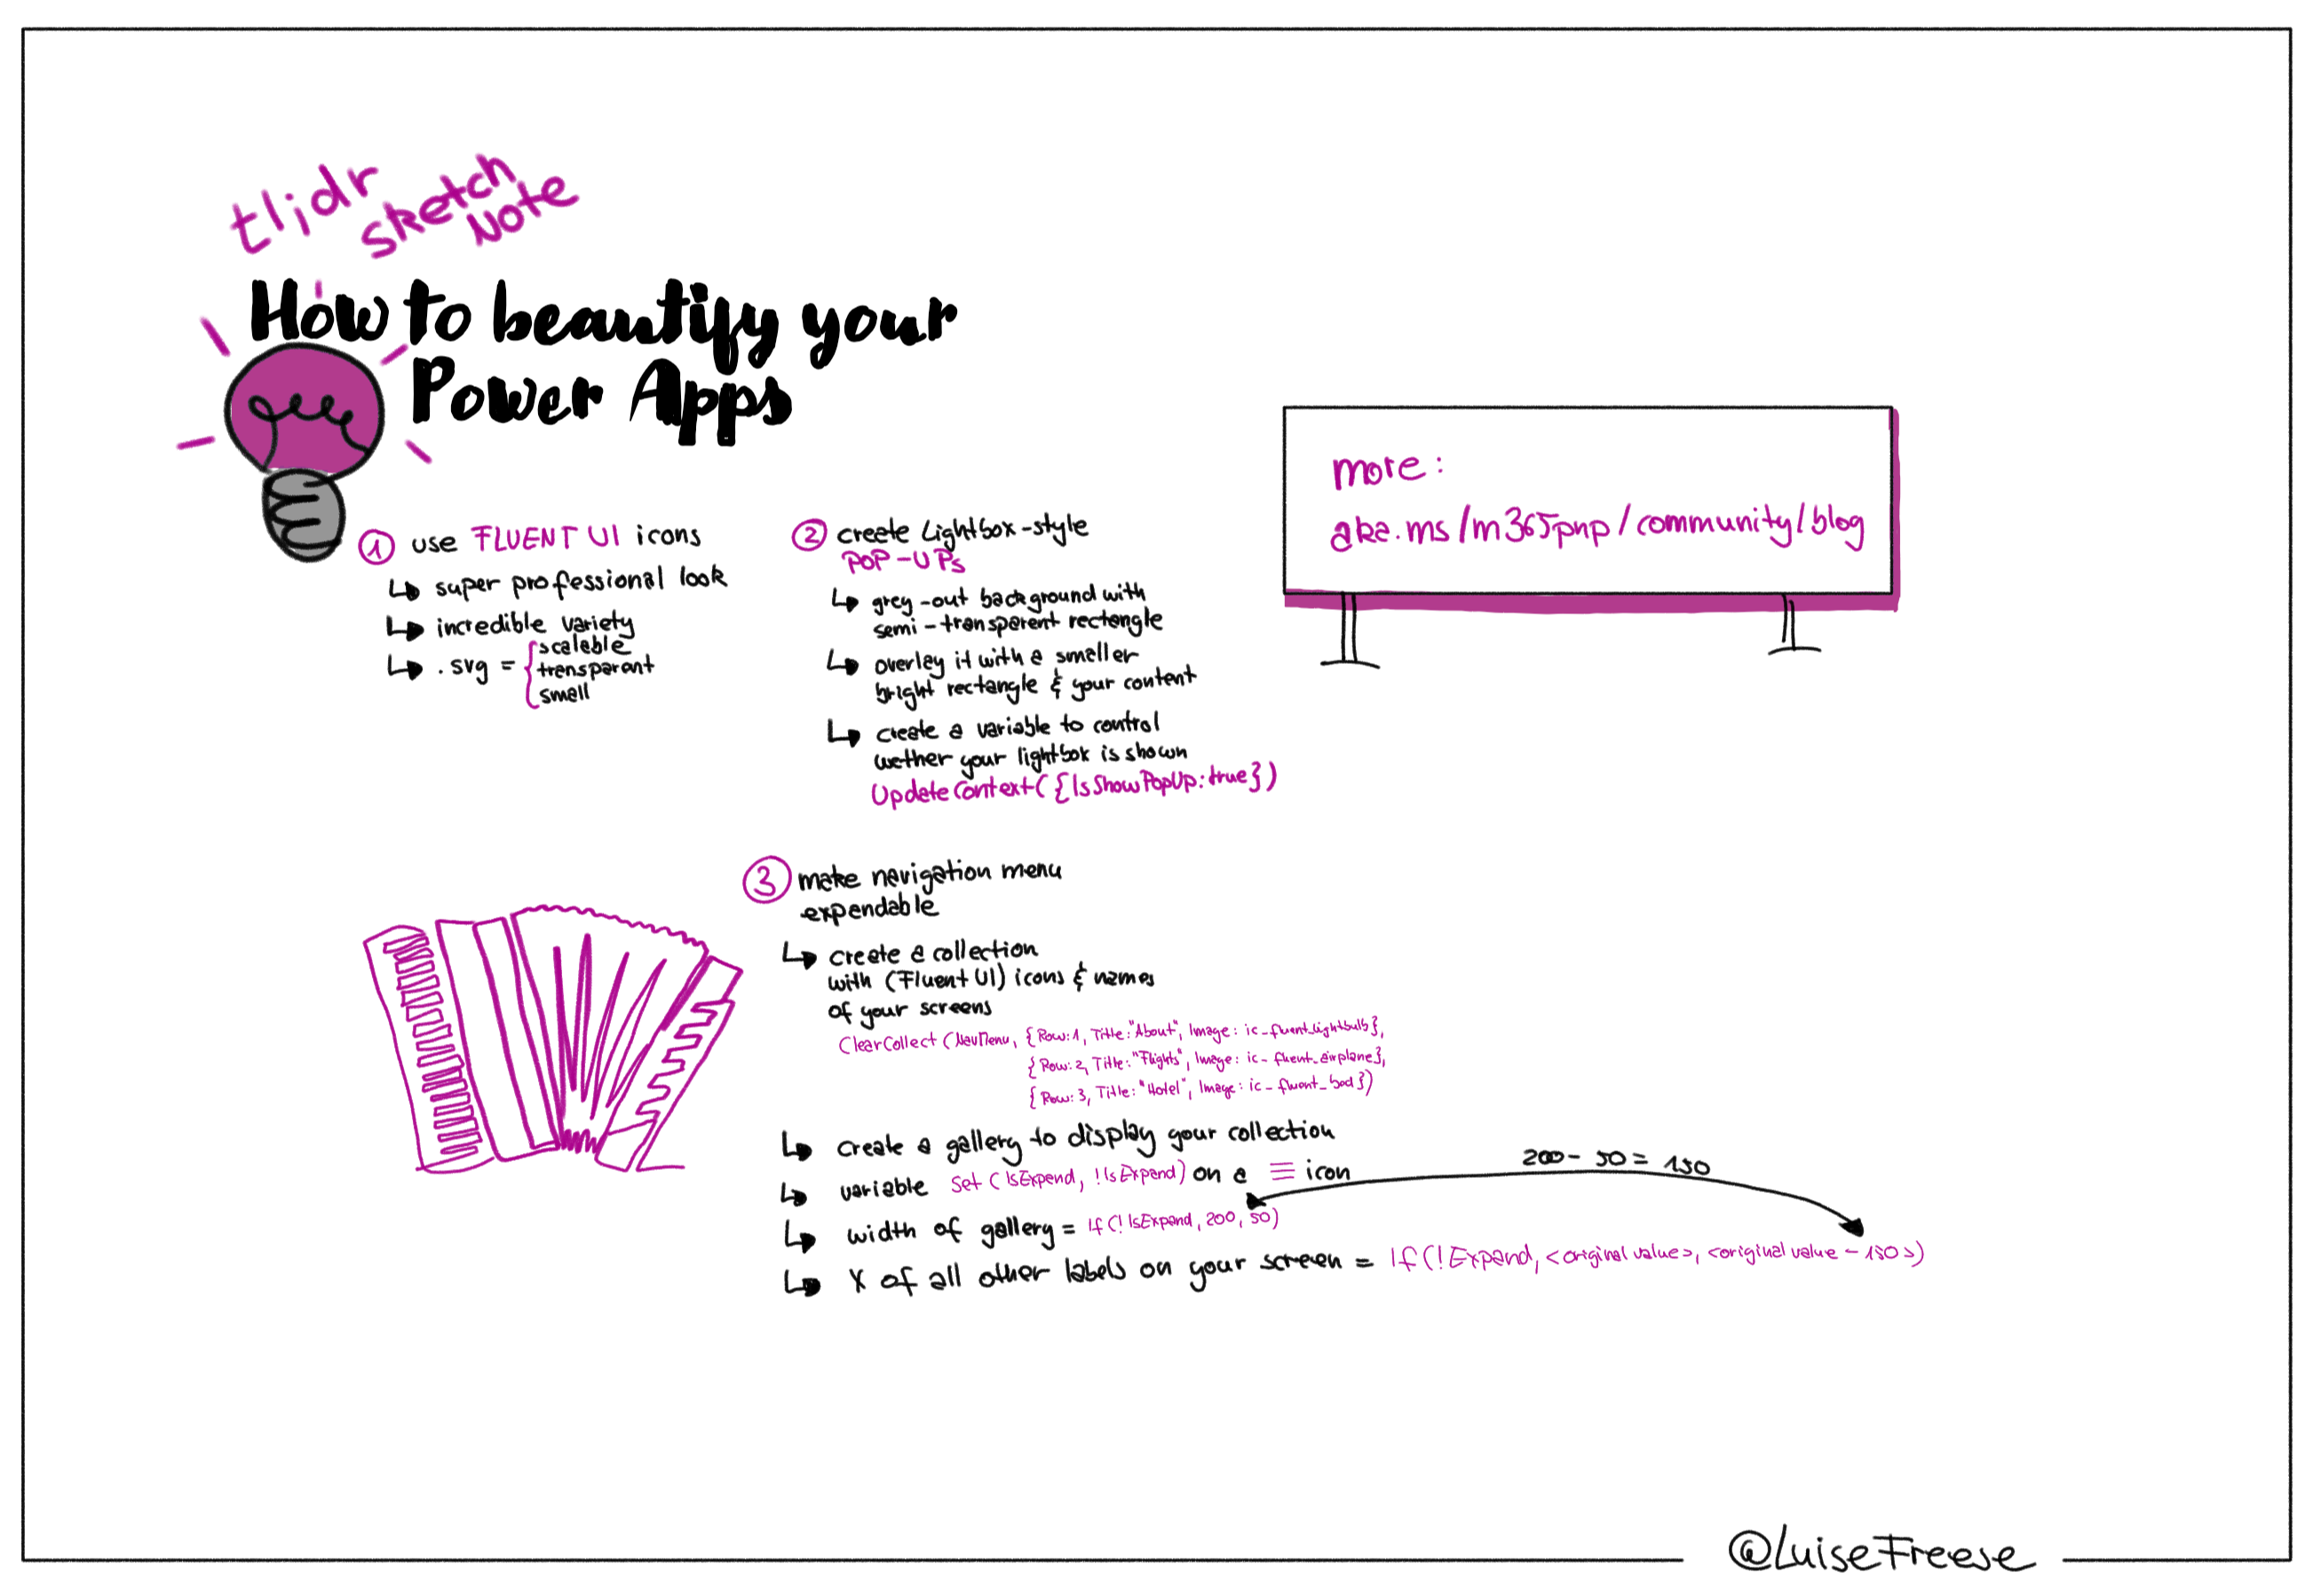 tl;dr
sketch
Note
How to beautify your
Power Apps
1 use FLUENT UI icons
super professional look
incredible variety
.svg = { scalable
transparent
small
2 create Lightbox-style
POP-UPs
grey-out background with
semi-transparent rectangle
overlay it with a smaller
bright rectangle & your content
create a variable to control
wether your lightbox is shown
UpdateContext({IsShowPopUp:true})
more:
aka.ms/m365pnp/community/blog
3 make navigation menu
expandable
create a collection
with (Fluent UI) icons & names
of your screens
ClearCollect (NavMenu, {Row:1, Title:"About", Image: ic_fluent_lightbulb},
{Row:2, Title:"Flights", Image: ic_fluent_airplane},
{Row:3, Title:"Hotel", Image: ic_fluent_bed})
create a gallery to display your collection
variable Set (IsExpand, !IsExpand) on a ☰ icon
200 - 50 = 150
width of gallery = If(!IsExpand, 200, 50)
X of all other labels on your screen = If(!Expand, <original value>, <original value - 150>)
@LuiseFreese